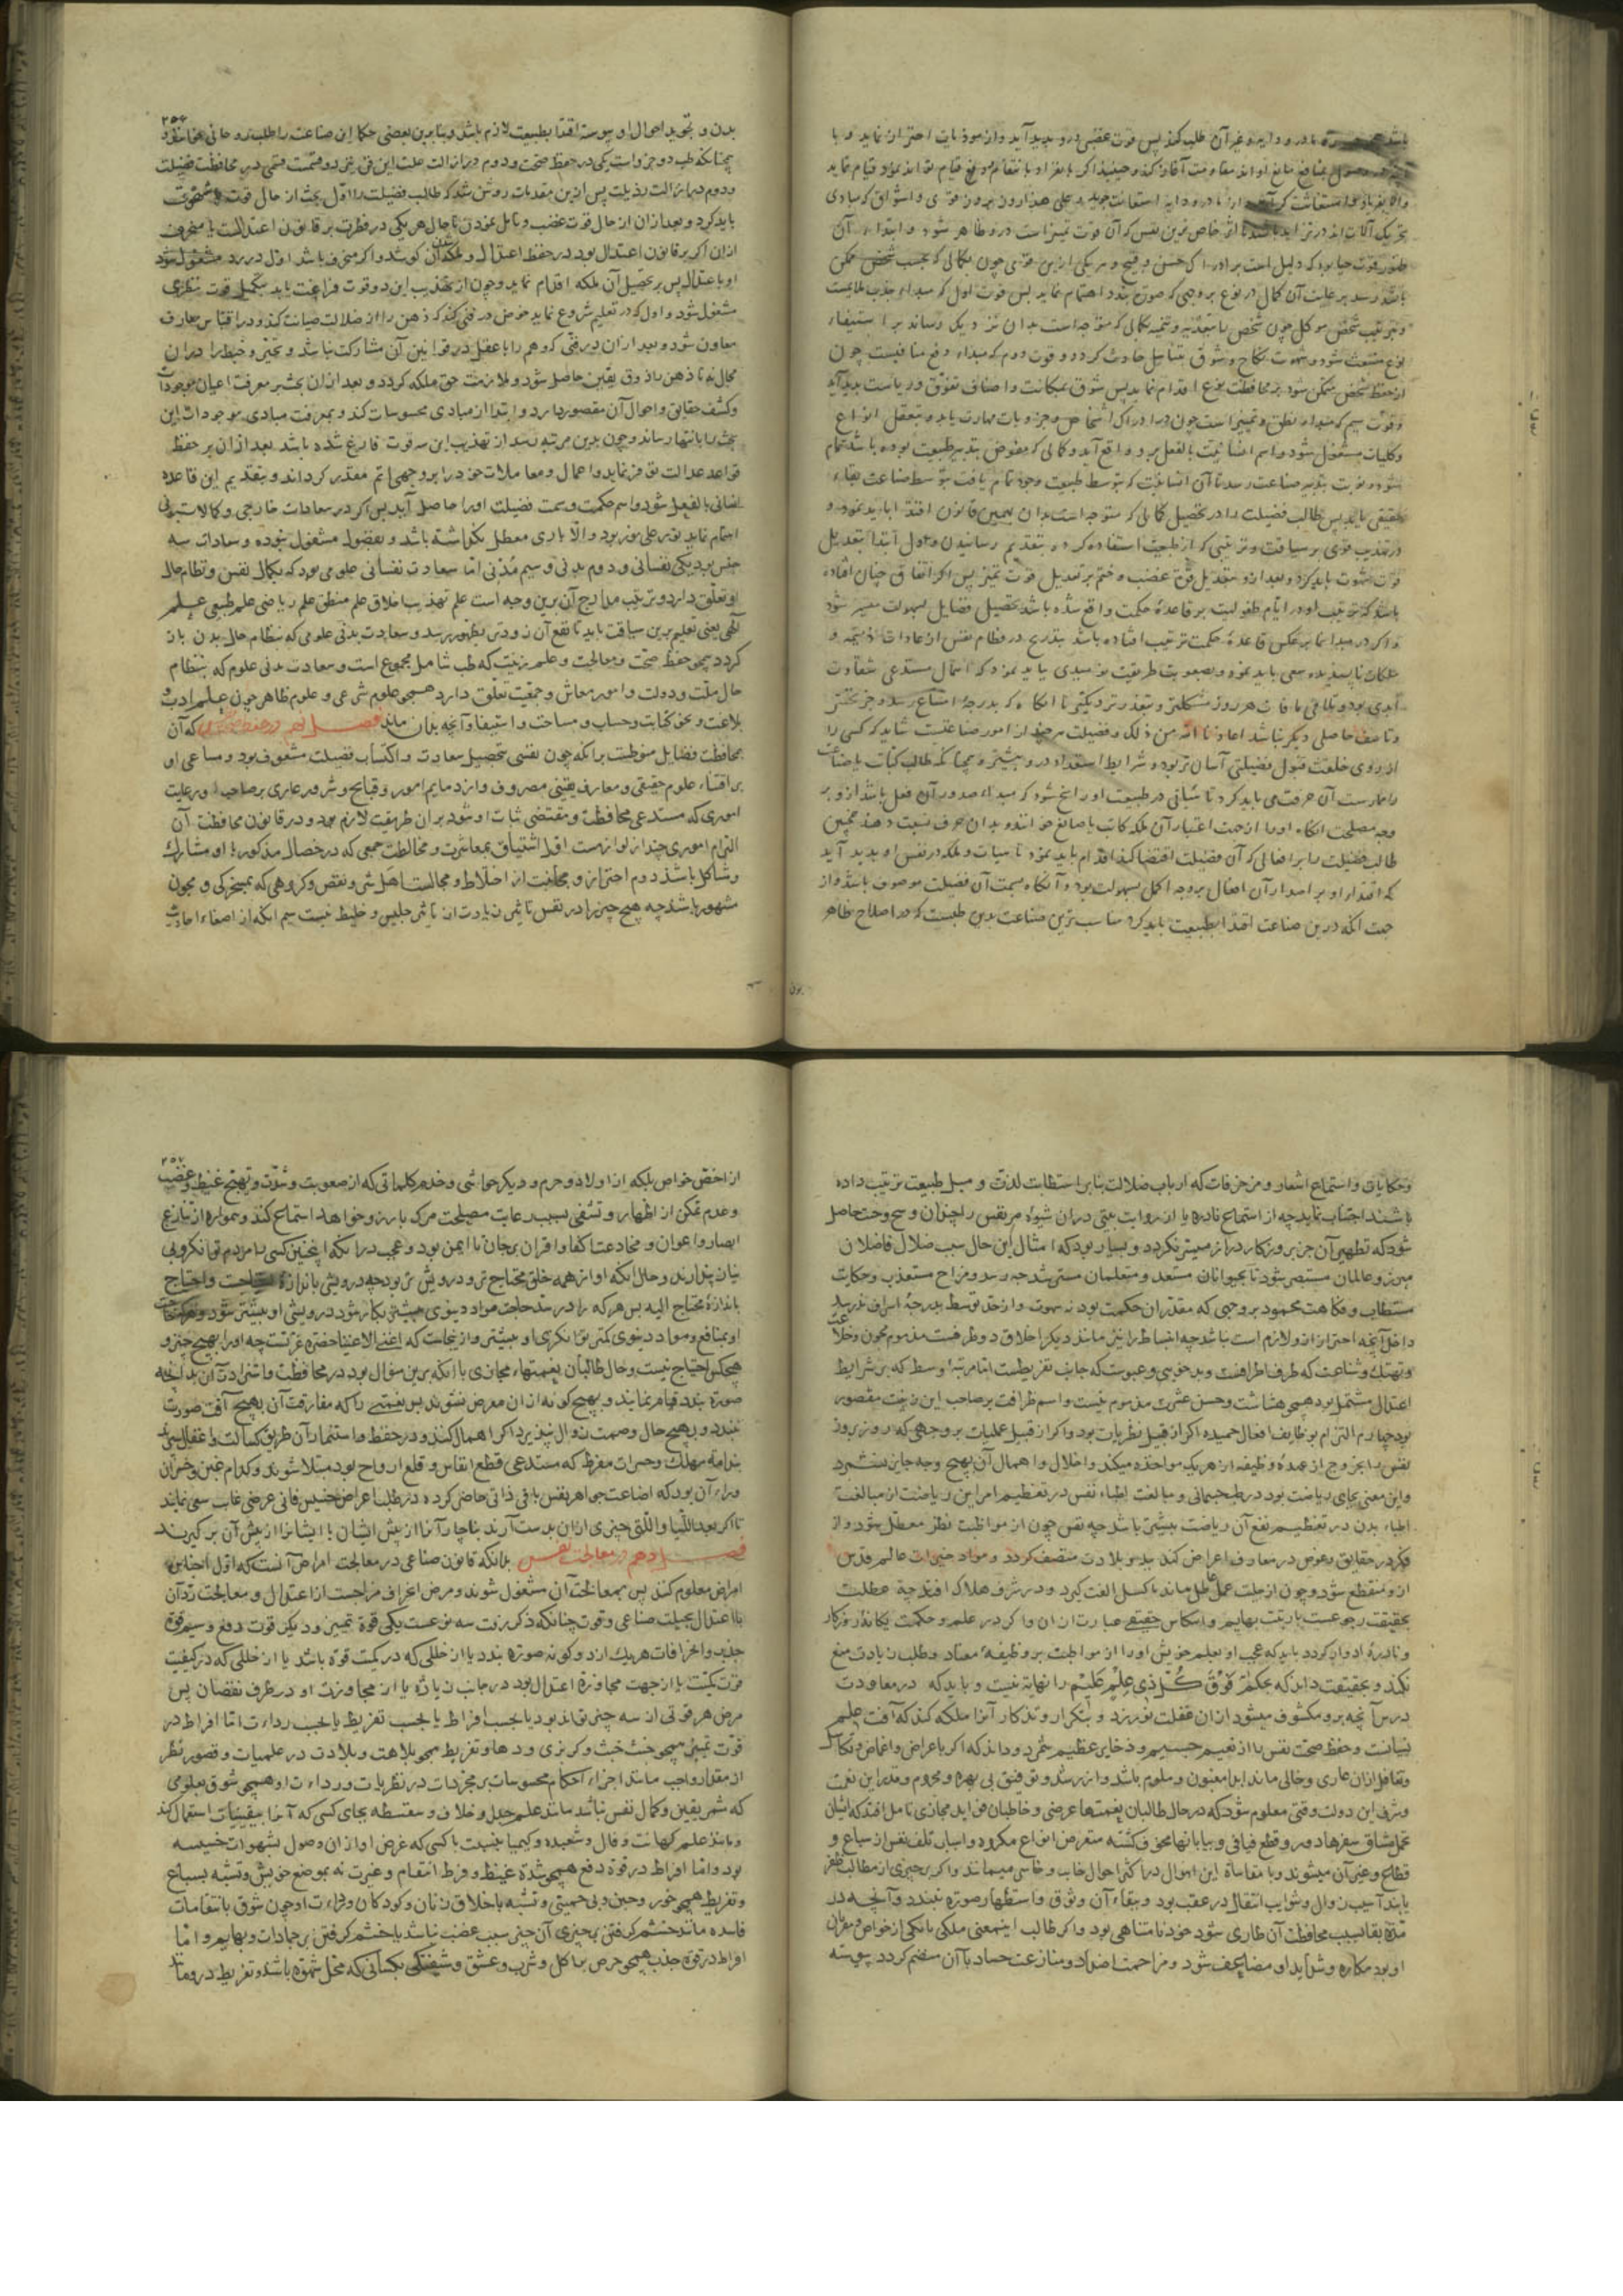 باشد تا در و دایه و غیر آن طلب کند پس قوت غضبی درو پدید آید و از موذیات احتراز نماید و با
وصول بمنافع مانع او اند مقاومت آغاز کند و حینئذ اگر بانفراد بانتقام و دفع قیام تواند نمود قیام نماید
والا بفریاد و استغاثت از مادر و دایه استعانت جوید و علی هذا روز بروز قوی و اشواق که مبادی
تحریک آلات اند در تزاید باشد تا اثر خاص ترین نفس که آن قوت تمیز است درو ظاهر شود و ابتداء آن
ظهور قوت حیا بود که دلیل است بر ادراک حسن و قبح و هر یکی ازین قوی چون بکمالی که بحسب شخص ممکن
باشد رسد بر عایت آن کمال در نوع بر وجهی که صورت بندد اهتمام نماید پس قوت اول که مبداء جذب ملایمت
و بترتیب شخص موکل چون شخص را بتغذیه و تنمیه بکمالی که متوجه است بدان نزدیک رساند بر استبقاء
نوع منبعث شود و شهوت نکاح و شوق بتناسل حادث گردد و قوت دوم که مبداء دفع منافیست چون
از حفظ شخص متمکن شود بر محافظت نوع اقدام نماید پس شوق بمکانت و اصناف تفوق و ریاست پدید آید
و قوت سیم که مبداء نطق و تمییز است چون در ادراک اشخاص و جزویات مهارت یابد و بتعقل انواع
و کلیات مشغول شود و اسم انسانیت بالفعل برو واقع آید و کمالی که مفوض بتدبیر طبیعت بوده باشد تمام
شود و نوبت بتدبیر صناعت رسد تا آن انسانیت که بتوسط طبیعت وجود تمام یافت بتوسط صناعت بقاء
حقیقی یابد پس طالب فضیلت را در تحصیل کمالی که متوجه است بدان بهمین قانون اقتدا باید نمود و
در تهذیب قوی بر سیاقت و ترتیبی که از طبیعت استفاده کرده بتقدیم رسانیدن و اول ابتدا بتعدیل
قوت شهوت باید کرد و بعد ازو بتعدیل قوت غضب و ختم بر تعدیل قوت تمیز پس اگر اتفاق چنان افتاده
باشد که تربیت او در ایام طفولیت بر قاعدهٔ حکمت واقع شده باشد تحصیل فضایل بسهولت میسر شود
و اگر در مبدا نما بر عکس قاعدهٔ حکمت تربیت افتاده باشد بتدریج در فطام نفس از عادات ذمیمه و
ملکات ناپسندیده سعی باید نمود و بصعوبت طریقت نومیدی نباید نمود که اهمال مستدعی شقاوت
ابدی بود و تلافی ما فات هر روز مشکلتر و بتعذر نزدیکتر تا انگاه که بدرجهٔ امتناع رسد و جز تحسر
و تاسف حاصلی دیگر نباشد اعاذنا الله من ذلک و فضیلت هر چند از امور صناعتست شاید که کسی را
از روی خلقت قبول فضیلتی آسان تر بود و شرایط استعداد درو بیشتر و همچنانکه طالب کتابت یا صناعت
را ممارست آن حرفت می باید کرد تا هیأتی در طبیعت او راسخ شود که مبداء صدور آن فعل باشد ازو بر
وجه مصلحت انگاه او را از جهت اعتبار آن ملکه کاتب یا صانع خوانند و بدان حرف نسبت دهند همچنین
طالب فضیلت را بر افعالی که آن فضیلت اقتضا کند اقدام باید نمود تا هیأت و ملکه در نفس او پدید آید
که اقتدار او بر اصدار آن افعال بر وجه اکمل بسهولت بود و آنگاه بسمت آن فضیلت موصوف باشد و از
جهت انکه درین صناعت اقتدا بطبیعت باید کرد مناسب ترین صناعت بدین طبست که در اصلاح ظاهر
۲۵۶
بدن و تجوید احوال او پیوسته اقتدا بطبیعت لازم باشد و بنابرین بعضی حکما این صناعت را طب روحانی خوانند و
همچنانکه طب دو جزو است یکی در حفظ صحت و دوم در ازالت علت این فن نیز دو قسمت قسمی در محافظت فضیلت
و دوم در ازالت رذیلت پس ازین مقدمات روشن شد که طالب فضیلت را اول بحث از حال قوت شهوت
باید کرد و بعد ازان از حال قوت غضب و تامل نمودن تا حال هر یکی در فطرت بر قانون اعتدالست یا منحرف
ازان اگر بر قانون اعتدال بود در حفظ اعتدال و ملکه آن کوشد و اگر منحرف باشد اول در رد مشغول شود
او با عتدال پس بر تحصیل آن ملکه اقدام نماید و چون از تهذیب این دو قوت فراغت یابد بتکمیل قوت نظری
مشغول شود و اول که در تعلیم شروع نماید خوض در فنی کند که ذهن را از ضلالت صیانت کند و در اقتباس معارف
معاون شود و بعد ازان در فنی که وهم را با عقل در قوانین آن مشارکت نباشد و تحیر و خبط را دران
مجال نه تا ذهن را ذوق یقین حاصل شود و ملازمت حق ملکه گردد و بعد ازان بحث بر معرفت اعیان موجودات
و کشف حقایق و احوال آن مقصور دارد و ابتدا از مبادی محسوسات کند و بمعرفت مبادی موجودات این
بحث را بانتها رساند و چون بدین مرتبه رسد از تهذیب این سه قوت فارغ شده باشد بعد ازان بر حفظ
قواعد عدالت توفر نماید و اعمال و معاملات خود را بر وجهی اتم مقدر گرداند و بتقدیم این قاعده
انسانی بالفعل شود و اسم حکمت و سمت فضیلت او را حاصل آید پس اگر در سعادات خارجی و کمالات بدنی
اهتمام نماید نور علی نور بود والا باری معطل نگذاشته باشد و بفضول مشغول نبوده و سعادات سه
جنس بود یکی نفسانی و دوم بدنی و سیم مدنی اما سعادت نفسانی علومی بود که بکمال نفس و نظام حال
او تعلق دارد و ترتیب مدارج آن برین وجه است علم تهذیب اخلاق علم منطق علم ریاضی علم طبیعی علم
الهی یعنی تعلیم برین سیاقت باید تا نفع آن زودتر بظهور رسد و سعادت بدنی علومی که بنظام حال بدن باز
گردد همچو حفظ صحت و معالجت و علم زینت که طب شامل مجموع است و سعادت مدنی علوم که بنظام
حال ملت و دولت و امور معاش و جمعیت تعلق دارد همچو علوم شرعی و علوم ظاهر چون علم ادب و
بلاغت و نحو کتابت و حساب و مساحت و استیفا و آنچه بدان ماند فصل نهم در حفظ صحت نفس که آن
محافظت فضایل منوطست برانکه چون نفسی بتحصیل سعادت و اکتساب فضیلت مشغوف بود و مساعی او
بر اقتناء علوم حقیقی و معارف یقینی مصروف و از ذمایم امور و قبایح و شرور عاری بر صاحب او رعایت
اموری که مستدعی محافظت و مقتضی ثبات او شود بران طریقت لازم بود و در قانون محافظت آن
التزام اموری چند از لوازمست اول اشتیاق بمعاشرت و مخالطت جمعی که در خصال مذکور با او مشارک
و مشاکل باشند دوم احتراز و مجانبت از اختلاط و مجالست اهل شر و نقص و گروهی که بمسخرگی و مجون
مشهور باشند چه هیچ چیز را در نفس تاثیر زیادت از تاثیر جلیس و خلیط نیست سیم انکه از اصغاء احادیث
و حکایات و استماع اشعار و مزخرفات که ارباب ضلالت بنابر استطابت لذت و میل طبیعت ترتیب داده
باشند اجتناب نماید چه از استماع نادره یا از روایت بیتی دران شیوه مر نفس را چندان وسخ و خبث حاصل
شود که تطهیر آن جز بروزگار دراز میسر نگردد و بسیار بود که امثال این حال سبب ضلال فاضلان
مبرز و عالمان مستبصر شود تا بجوانان مستعد و متعلمان مسترشد چه رسد و مزاح مستعذب و حکات
مستطاب و فکاهت محمود بر وجهی که مقدر آن حکمت بود نه شهوت و از حد توسط بدرجهٔ اسراف نرسد
داخل آنچه احتراز ازو لازم است نباشد چه انبساط را نیز مانند دیگر اخلاق دو طرفست مذموم مجون و خلاعت
و تهتک و شناعت که طرف افراطست و بدخویی و عبوست که جانب تفریطست اما مرتبهٔ اوسط که بر شرایط
اعتدال مشتمل بود همچو هشاشت و حسن عشرت مذموم نیست و اسم ظرافت بر صاحب این رتبت مقصور
بود چهارم التزام بوظایف افعال حمیده اگر از قبیل نظریات بود و اگر از قبیل عملیات بر وجهی که روز بروز
نفس را بخروج از عهدهٔ وظیفه از هر یک مواخذه میکند و اخلال و اهمال آن بهیچ وجه جایز نشمرد
و این معنی بجای ریاضت بود در طب جسمانی و مبالغت اطباء نفس در تعظیم امر این ریاضت از مبالغت
اطباء بدن در تعظیم نفع آن ریاضت بیشتر باشد چه نفس چون از مواظبت نظر معطل شود و از
فکر در حقایق و خوض در معارف اعراض کند ببله و بلادت متصف گردد و مواد خیرات عالم قدس
ازو منقطع شود و چون از حلیت عمل عاطل ماند با کسل الفت گیرد و در شرف هلاک افتد چه عطلت
بحقیقت رجوعست با رتبت بهایم و انتکاس حقیقی عبارت از آن و اگر در علم و حکمت یگانهٔ روزگار
و نادرهٔ ادوار گردد باید که عجب او بعلم خویش او را از مواظبت بر وظیفهٔ معتاد و طلب زیادت منع
نکند و بحقیقت داند که بحکم فوق کل ذی علم علیم را نهایة نیست و باید که در معاودت
درس آنچه برو مکشوف میشود ازان غفلت نورزد و بتکرار و تذکار آنرا ملکه کند که آفت علم
نسیانست و حفظ صحت نفس را از نعیم جسیم و ذخایر عظیم شمرد و داند که اگر با عراض و اغماض و تکاسل
و تغافل ازان عاری و خالی ماند ابدا مغبون و ملوم باشد و از رشد و توفیق بی بهره و محروم و قدر این نعمت
و شرف این دولت وقتی معلوم شود که در حال طالبان نعمتها عرضی و خاطبان فواید مجازی تامل افتد که ایشان
تحمل مشاق سفرها دور و قطع فیافی و بیابانها مخوف گشته متعرض انواع مکروه و اسباب تلف نفس از سباع و
قطاع و غیر آن میشوند و با مقاساة این اهوال در اکثر احوال خایب و خاسر میمانند و اگر بچیزی از مطالب ظفر
یابند آسیب زوال و شوایب انتقال در عقب بود و ببقاء آن وثوق و استظهار صورة نبندد و آنچه در
مدة بقا سبب محافظت آن طاری شود خود نامتناهی بود و اگر طالب اینمعنی ملکی یا یکی از خواص و مقربان
او بود مکاره و شداید او مضاعف شود و مزاحمت اضداد و منازعت حساد با آن منضم گردد پیوسته
۲۵۷
از اخص خواص بلکه از اولاد و حرم و دیگر حواشی و خدم کلماتی که از صعوبت و شدت و تهیج غیظ و غضب
و عدم تمکن از اظهار و تشفی بسبب رعایت مصلحت مرگ بارزو خواهد استماع کند و همواره از تنازع
انصار و اعوان و مخادعت اکفا و اقران بر جان نا ایمن بود و عجب درانکه اینچنین کسی را مردم توانگر و بی
نیاز پندارند و حال انکه او از همه خلق محتاج تر و درویش تر بود چه درویشی باندازهٔ احتیاجست و احتیاج
باندازهٔ محتاج الیه پس هر که را در سد حاجت مواد دنیوی بیشتر بکار شود درویشی او بیشتر شود و هر که احتیاج
او بمنافع و مواد دنیوی کمتر توانگری او بیشتر و ازینجاست که اغنی الاغنیا حضرة عزتست چه او را بهیچ چیز و
هیچکس احتیاج نیست و حال طالبان نعمتهاء مجازی با انکه برین منوال بود در محافظت و استزادت آن بدانچه
صورة بندد قیام نمایند و بهیچ گونه ازان معرض نشوند پس نعمتی را که مفارقت آن بهیچ آفت صورت
نبندد و بهیچ حال وصمت زوال نپذیرد اگر اهمال کنند و در حفظ و استثمار آن طریق کسالت و اغفال سپرند
بندامة مهلک و حسرات مفرط که مستدعی قطع انفاس و قلع ارواح بود مبتلا شوند و کدام غبن و خسران
وراء آن بود که اضاعت جواهر نفیس باقی ذاتی حاضر کرده در طلب اعراض خسیس فانی عرضی غایب سعی نمایند
تا اگر بعد اللتیا و اللتی چیزی ازان بدست آرند ناچار آنرا از پیش ایشان یا ایشانرا از پیش آن بر گیرند
فصل دهم در معالجت نفس بدانکه قانون صناعی در معالجت امراض آنست که اول اجناس
امراض معلوم کنند پس بمعالجت آن مشغول شوند و مرض انحراف مزاجست از اعتدال و معالجت رد آن
با اعتدال بحیلت صناعی و قوت چنانکه ذکر رفت سه نوعست یکی قوة تمییز و دیگر قوت دفع و سیم قوة
جذب و انحرافات هر یک از دو گونه صورة بندد یا از خللی که در کمیت قوة باشد یا از خللی که در کیفیت
قوت کمیت یا از جهت مجاوزة اعتدال بود در جانب زیادة یا از مجاوزت او در طرف نقصان پس
مرض هر قوتی از سه چیز تواند بود یا بحسب افراط یا بحسب تفریط یا بحسب رداءت اما افراط در
قوت تمییز همچو خبث و گربزی و دها و تفریط همچو بلاهت و بلادت در علمیات و قصور نظر
از مقدار واجب مانند اجزاء احکام محسوسات بر مجردات در نظریات و رداءت او همچو شوق بعلومی
که مثمر یقین و کمال نفس نباشد مانند علم جدل و خلاف و سفسطه بجای کسی که آنرا بیقینیات استعمال کند
و مانند علم کهانت و فال و شعبده و کیمیا بنسبت با کسی که غرض او ازان وصول بشهوات خسیسه
بود و اما افراط در قوة دفع همچو شدة غیظ و فرط انتقام و غیرت نه بموضع خویش و تشبه بسباع
و تفریط همچو خور و جبن و بی حمیتی و تشبه باخلاق زنان و کودکان و رداءت او چون شوق بانتقامات
فاسده مانند خشم گرفتن بر چیزی آن چیز سبب غضب نباشد یا خشم گرفتن بر جمادات و بهایم و اما
افراط در قوة جذب همچو حرص بر اکل و شرب و عشق و شیفتگی بکسانی که محل شهوة باشند و تفریط در و مانند